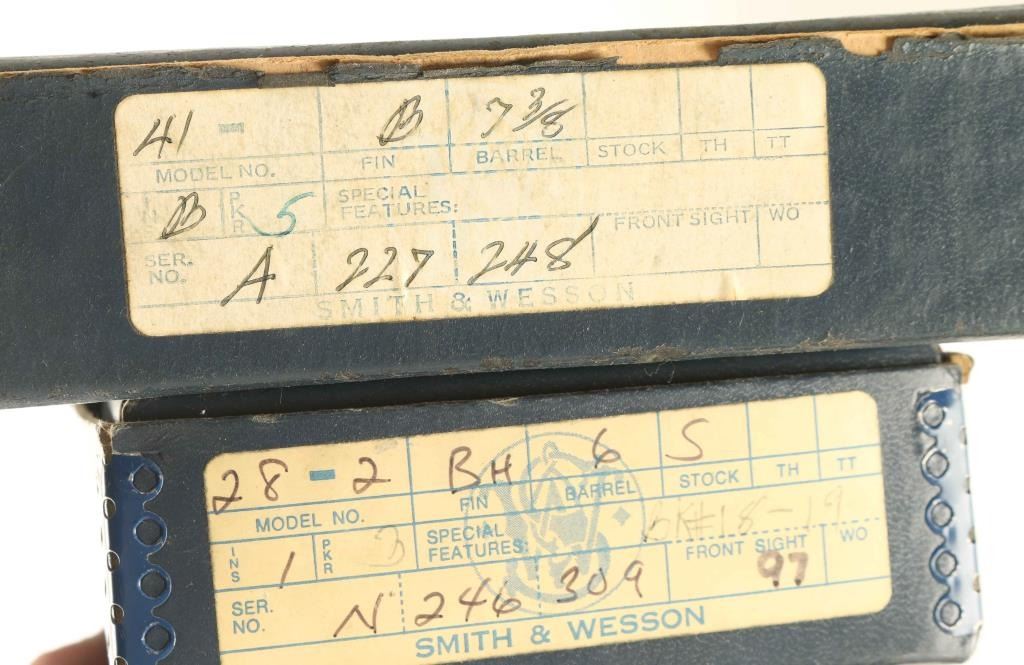 41 - B 7 3/8
MODEL NO. FIN BARREL STOCK TH TT
INS B PKR 5 SPECIAL FEATURES:
FRONT SIGHT WO
SER. NO. A 227 248
SMITH & WESSON
28 - 2 BH 6 S
MODEL NO. FIN BARREL STOCK TH TT
INS 1 PKR B SPECIAL FEATURES: BK#18-19
FRONT SIGHT 97 WO
SER. NO. N 246 309
SMITH & WESSON